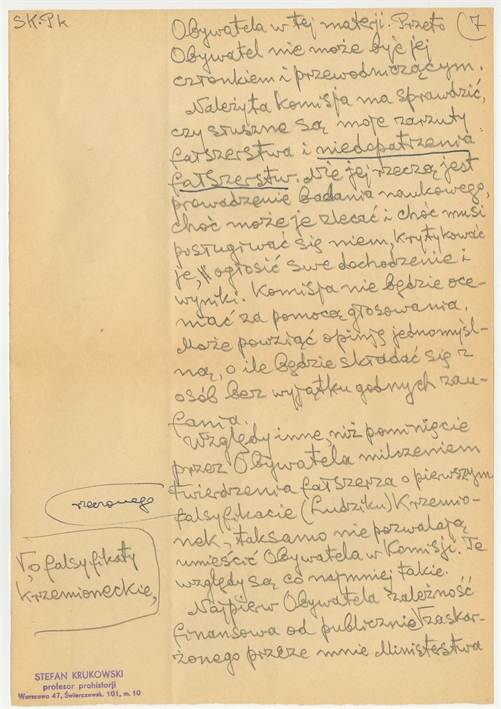 SK.Pk
7
Obywatela w tej materji. Przeto
Obywatel nie może być jej
członkiem i przewodniczącym.
Należyta komisja ma sprawdzić,
czy słuszne są moje zarzuty
fałszerstwa i niedopatrzenia
fałszerstw. Nie jej rzeczą jest
prowadzenie badania naukowego,
choć może je zlecać i choć musi
posługiwać się niem, krytykować
je, ogłosić swe dochodzenie i
wyniki. Komisja nie będzie oce-
niać za pomocą głosowania.
Może powziąć opinję jednomyśl-
ną, o ile będzie składać się z
osób bez wyjątku godnych zau-
fania.
Względy inne, niż pominięcie
przez Obywatela milczeniem
twierdzenia fałszerza o pierwszym
falsyfikacie (Ludziku) Krzemio-
nek, taksamo nie pozwalają
umieścić Obywatela w Komisji. Te
względy są co najmniej takie.
Najpierw Obywatela zależność
finansowa od publicznie zaskar-
żonego przeze mnie Ministestwa
rzeconego
o falsyfikaty
Krzemioneckie,
STEFAN KRUKOWSKI
profesor prahistorji
Warszawa 47, Świerczewsk. 101, m. 10